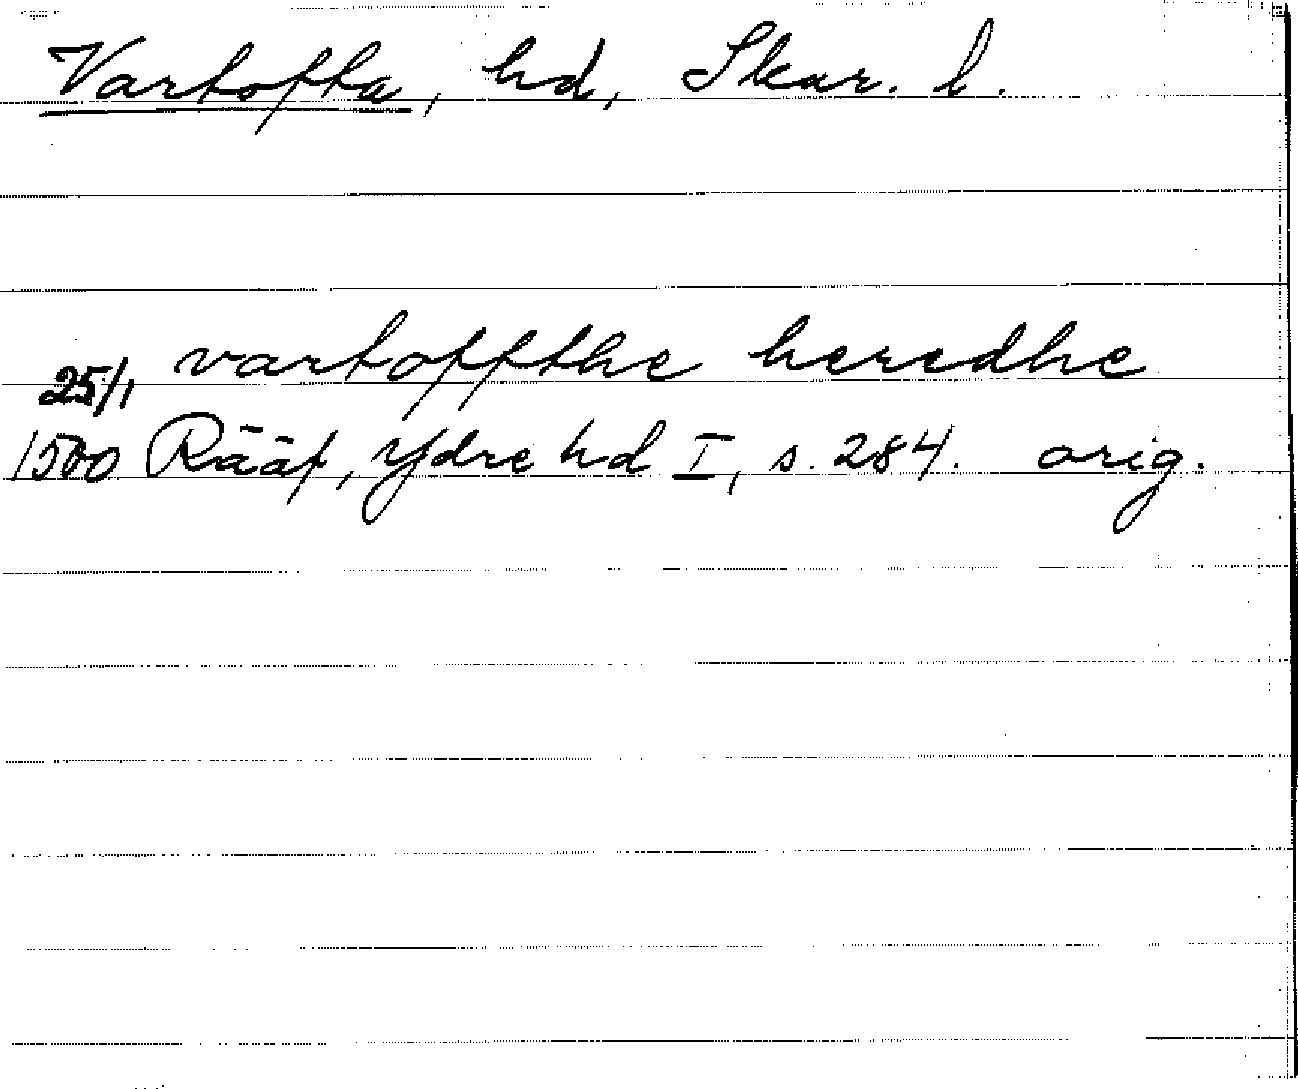 Vartofta, hd, Skar. l.
25/1 vartoffthe heredhe
1500 Rääf, Ydre hd I, s. 284. orig.